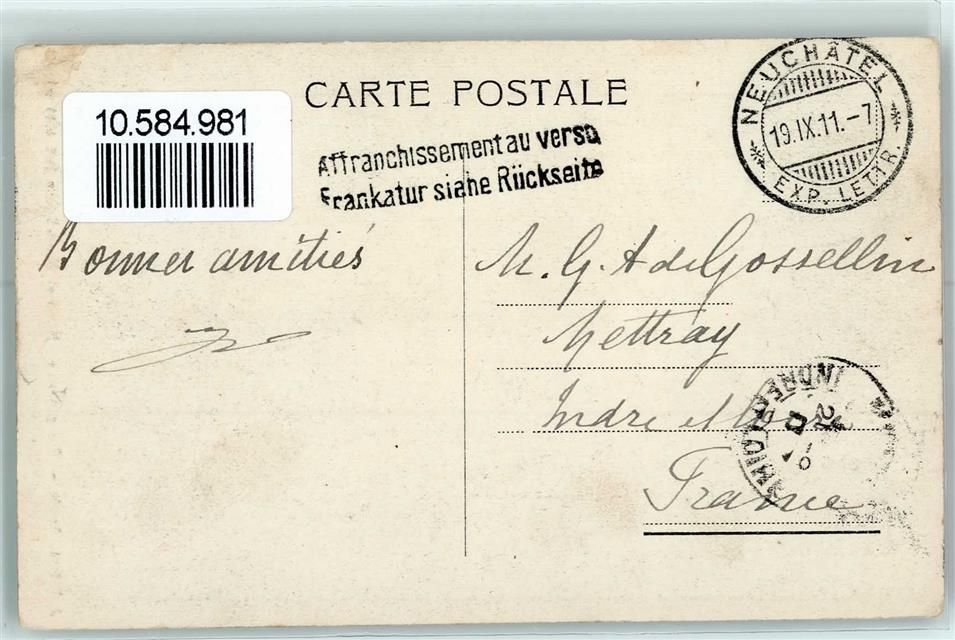 CARTE POSTALE
10.584.981
Affranchissement au verso
Frankatur siehe Rückseite
NEUCHÂTEL
19.IX.11.-7
EXP. LETTR.
Bonnes amitiés
M. G. A de Gossellin
Mettray
Indre et Loire
France
INDRE